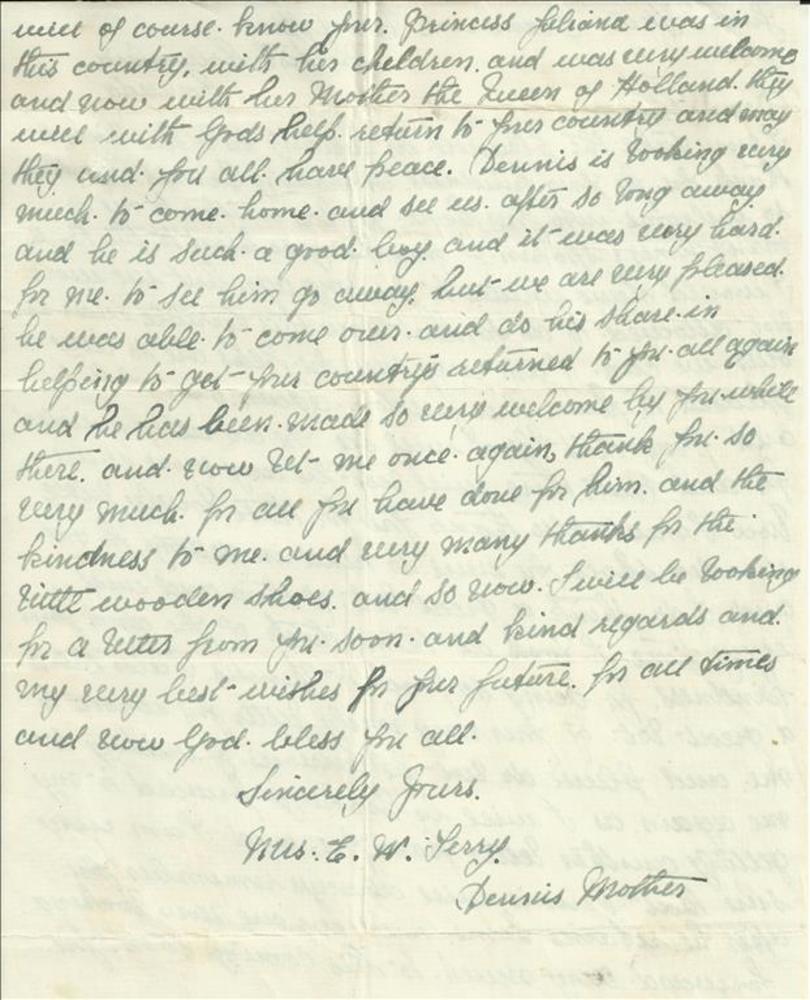 will of course. know your. Princess Juliana was in
this country, with her children. and was very welcome
and now with her Mother the Queen of Holland. they
will with Gods help. return to your country and may
they and. you all. have peace. Dennis is looking very
much. to come. home. and see us. after so long away.
and he is such. a good. boy. and it was very hard.
for me. to see him go away. but we are very pleased.
he was able. to come over. and do his share. in
helping to get your country's returned to you. all again
and he has been. made so very welcome by you. while
there. and. now let me once. again, thank you. so
very much. for all you have done for him. and the
kindness to me. and very many thanks for the
little wooden shoes. and so now. I will be looking
for a letter from you. soon. and kind regards and.
my very best wishes for your future. for all times
and now God. bless you all.
Sincerely Yours.
Mrs. E. W. Terry.
Dennis Mother